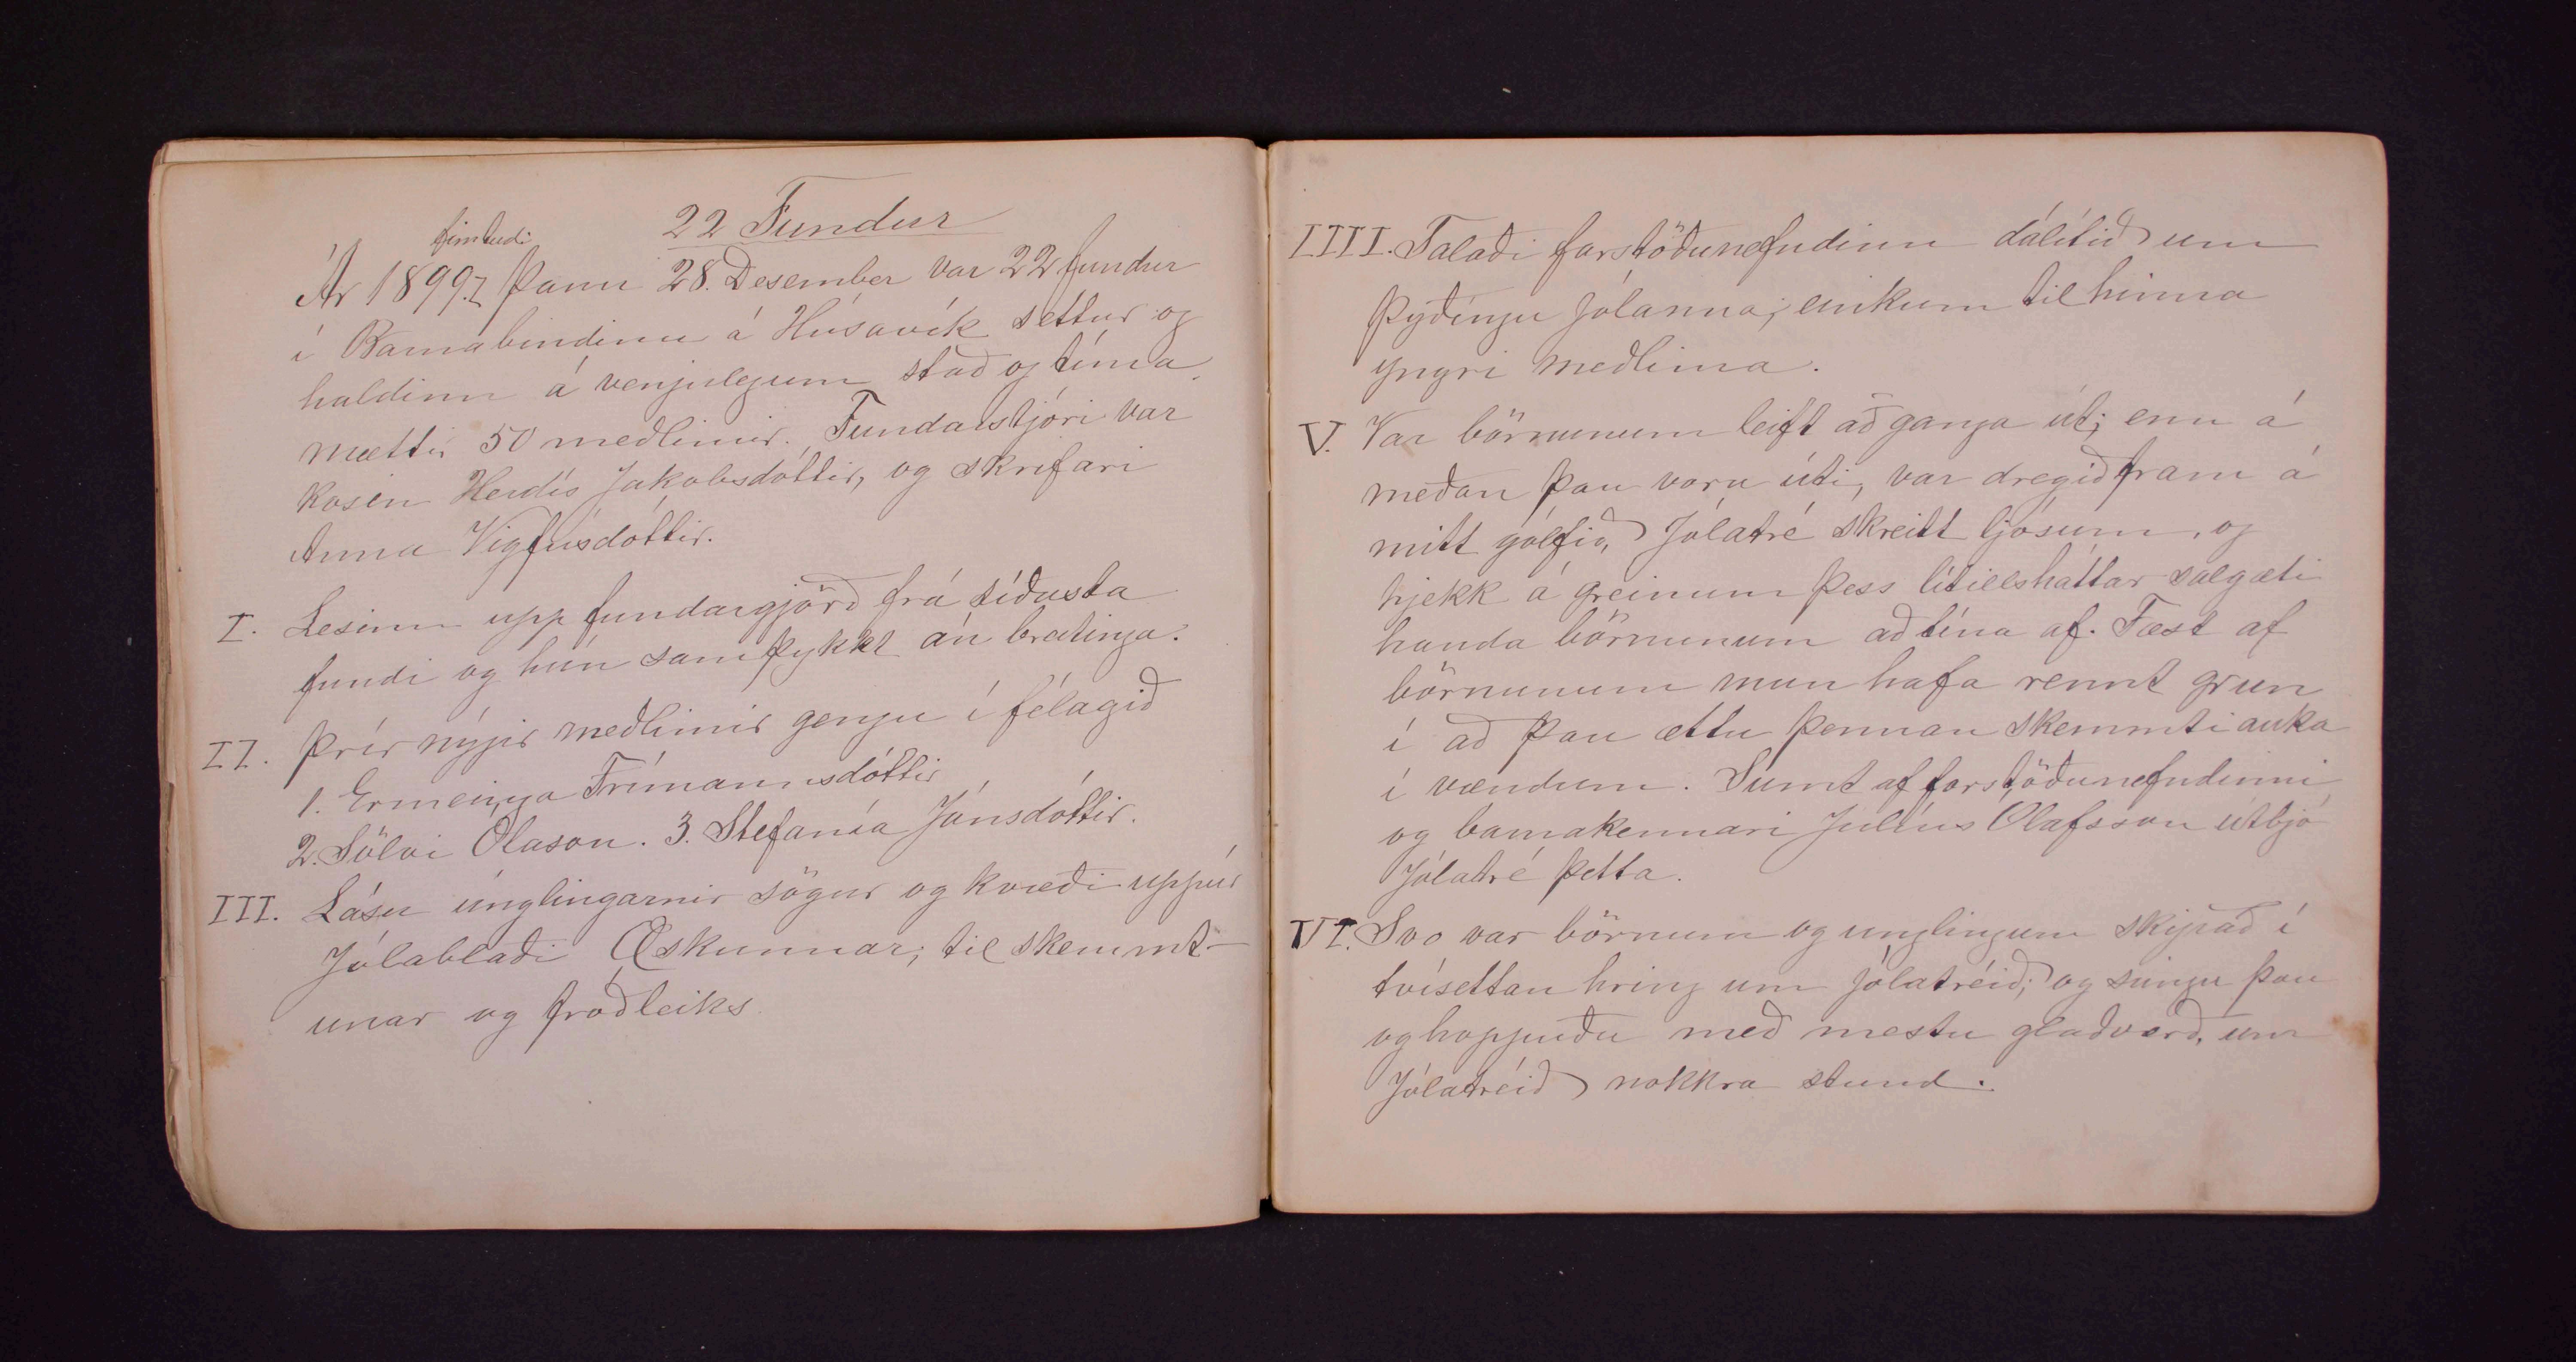 22 Fundur
fimtudi
Ár 1899. Þann 28. Desember var 22 fundur
í Barnabindinu á Húsavík settur og
haldinn á venjulegum stað og tíma.
mættir 50 meðlimir. Fundarstjóri var
kosin Herdís Jakobsdóttir, og skrifari
Anna Vigfúsdóttir.
I. Lesinn upp fundargjörð frá síðasta
fundi og hún samþykkt án breitinga.
II. Þrír nýjir meðlimir gengu í félagið
1. Ermeinga Frímannsdóttir
2. Sölvi Ólason. 3. Stefanía Jónsdóttir.
III. Lásu únglingarnir sögur og kvæði uppúr
Jólablaði Æskunnar; til skemmt-
unar og fróðleiks.
IIII. Talaði forstöðunefndinn dálítið um
Þýðingu Jólanna; einkum til hinna
yngri meðlima.
V. Var börnunum leift að ganga út; enn á
meðan þau voru úti, var dregið fram á
mitt gólfið, Jólatré skreitt ljósum, og
hjekk á greinum þess lítilsháttar salgæti
handa börnunum að tína af. Fæst af
börnunum mun hafa rennt grun
í að þau ættu þennan skemmti auka
í vændum. Sumt af forstöðunefndinni
og barnakennari Júlíus Ólafsson útbjó
Jólatré þetta.
VI. Svo var börnum og unglingum skipað í
tvísettan hring um jólatréið; og súngu þau
og hoppuðu með mestu glaðværð, um
Jólatréið nokkra stund.